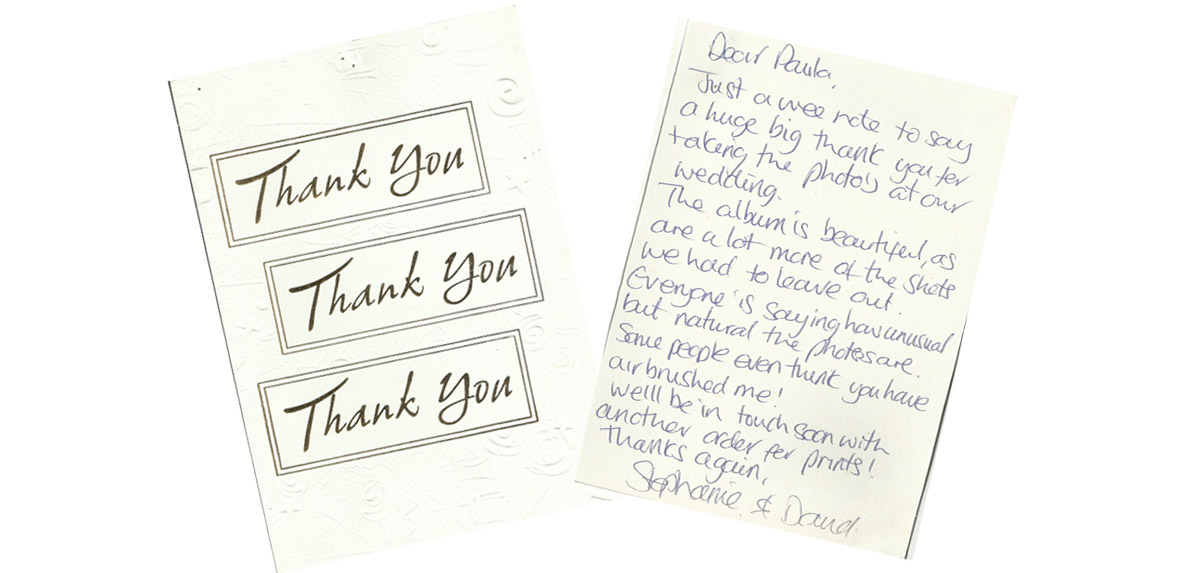 Thank You
Thank You
Thank You
Dear Paula,
Just a wee note to say
a huge big thank you for
taking the photo's at our
wedding.
The album is beautiful, as
are a lot more of the shots
we had to leave out.
Everyone is saying how unusual
but natural the photos are.
Some people even think you have
airbrushed me!
We'll be in touch soon with
another order for prints!
Thanks again,
Stephanie & David